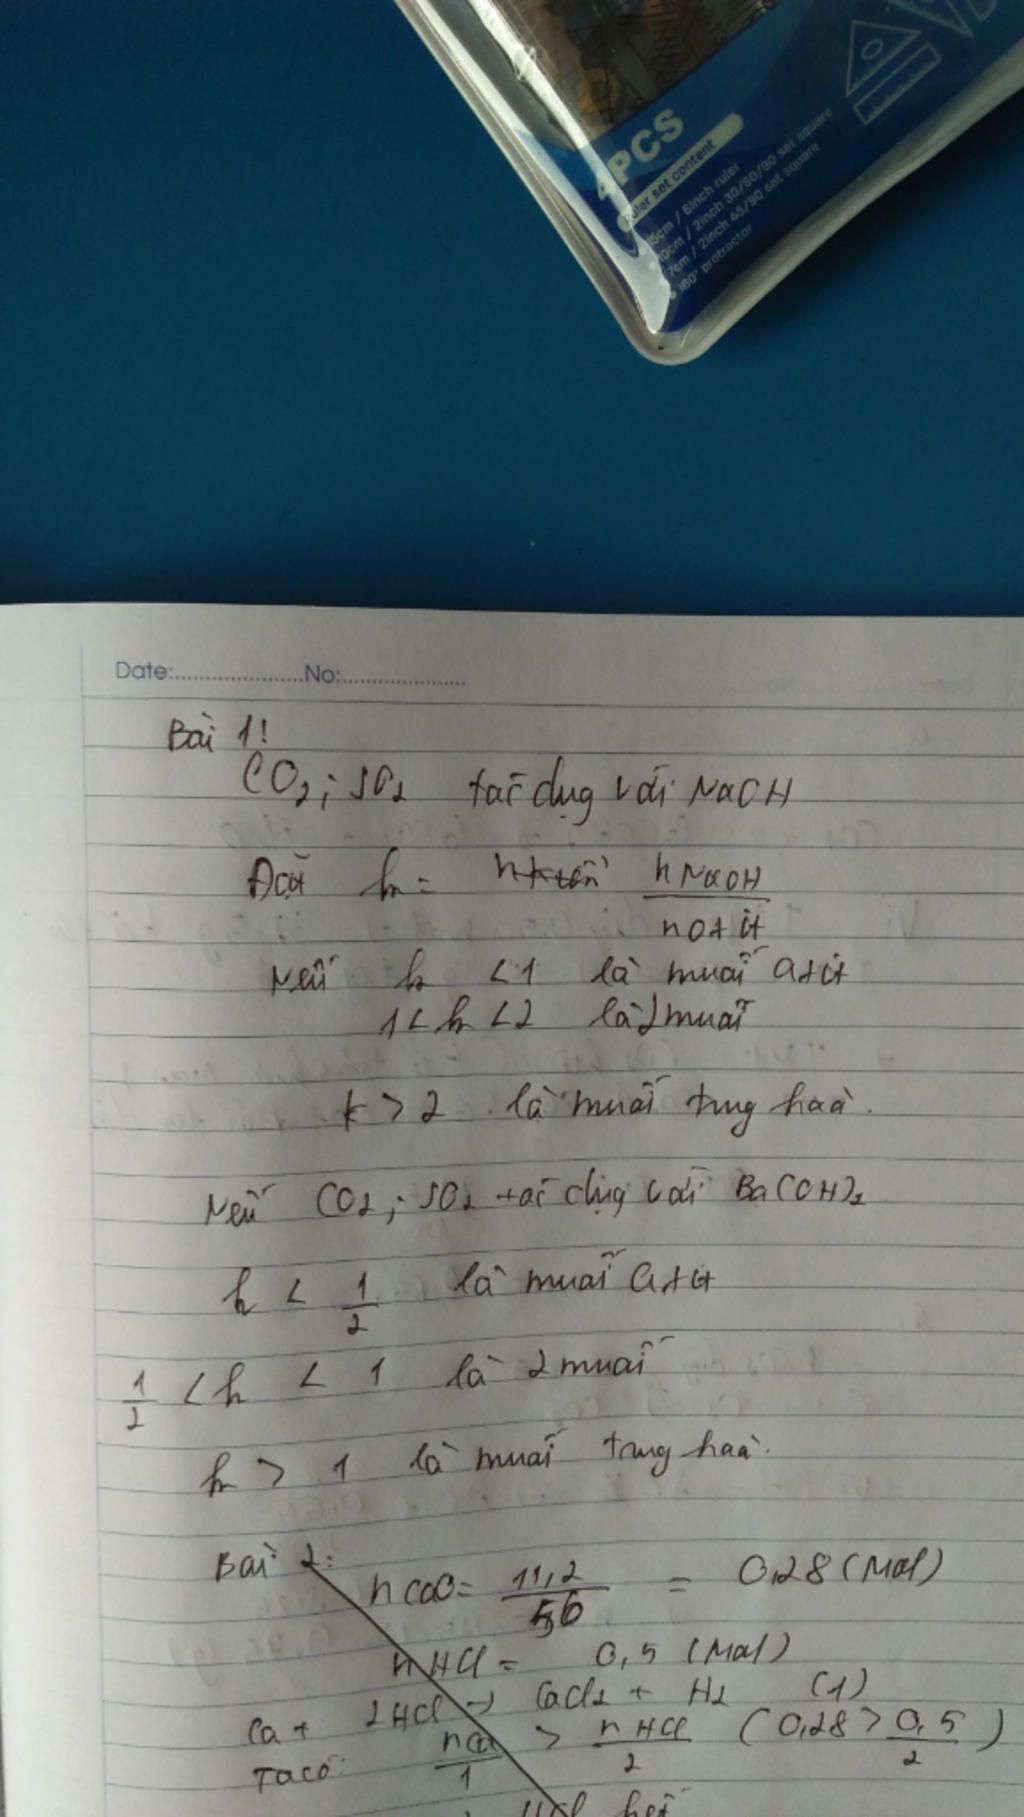 4PCS
ruler set content
15cm / 6inch ruler
10cm / 2inch 30/60/90 set square
7cm / 2inch 45/90 set square
180° protractor
Date:....................No:....................
Bài 1!
CO2; SO2 tác dụng với NaOH
Đặt k = nNaOH
n oxit
Nếu k < 1 là muối axit
1 < k < 2 là 2 muối
k > 2 là muối trung hoà.
Nếu CO2; SO2 tác dụng với Ba(OH)2
k < 1/2 là muối axit
1/2 < k < 1 là 2 muối
k > 1 là muối trung hoà.
Bài 2:
nCaO = 11,2/56 = 0,28 (Mol)
nHCl = 0,5 (Mol)
Ca + 2HCl → CaCl2 + H2 (1)
Ta có: nCa/1 > nHCl/2 (0,28 > 0,5/2)
HCl hết